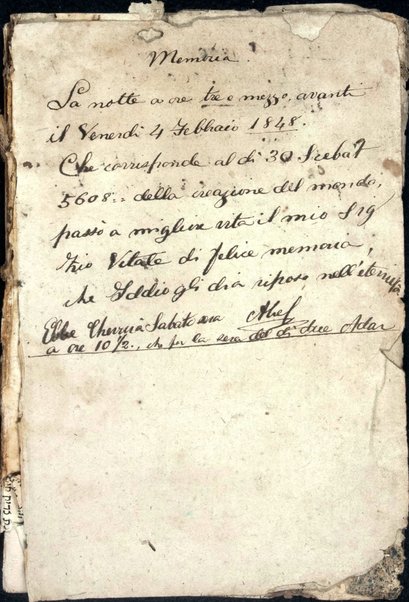 Memoria
La notte a ore tre e mezzo, avanti
il Venerdi 4 Febbraio 1848.
Che corrisponde al di 30 Scebat
5608.. della creazione del mondo,
passò a migliore vita il mio Sig
Zio Vitale di felice memoria,
che Iddio gli dia riposo nell'eternità
Ebbe Chevura Sabato sera
a ore 10 1/2., che fu la sera del di due Adar